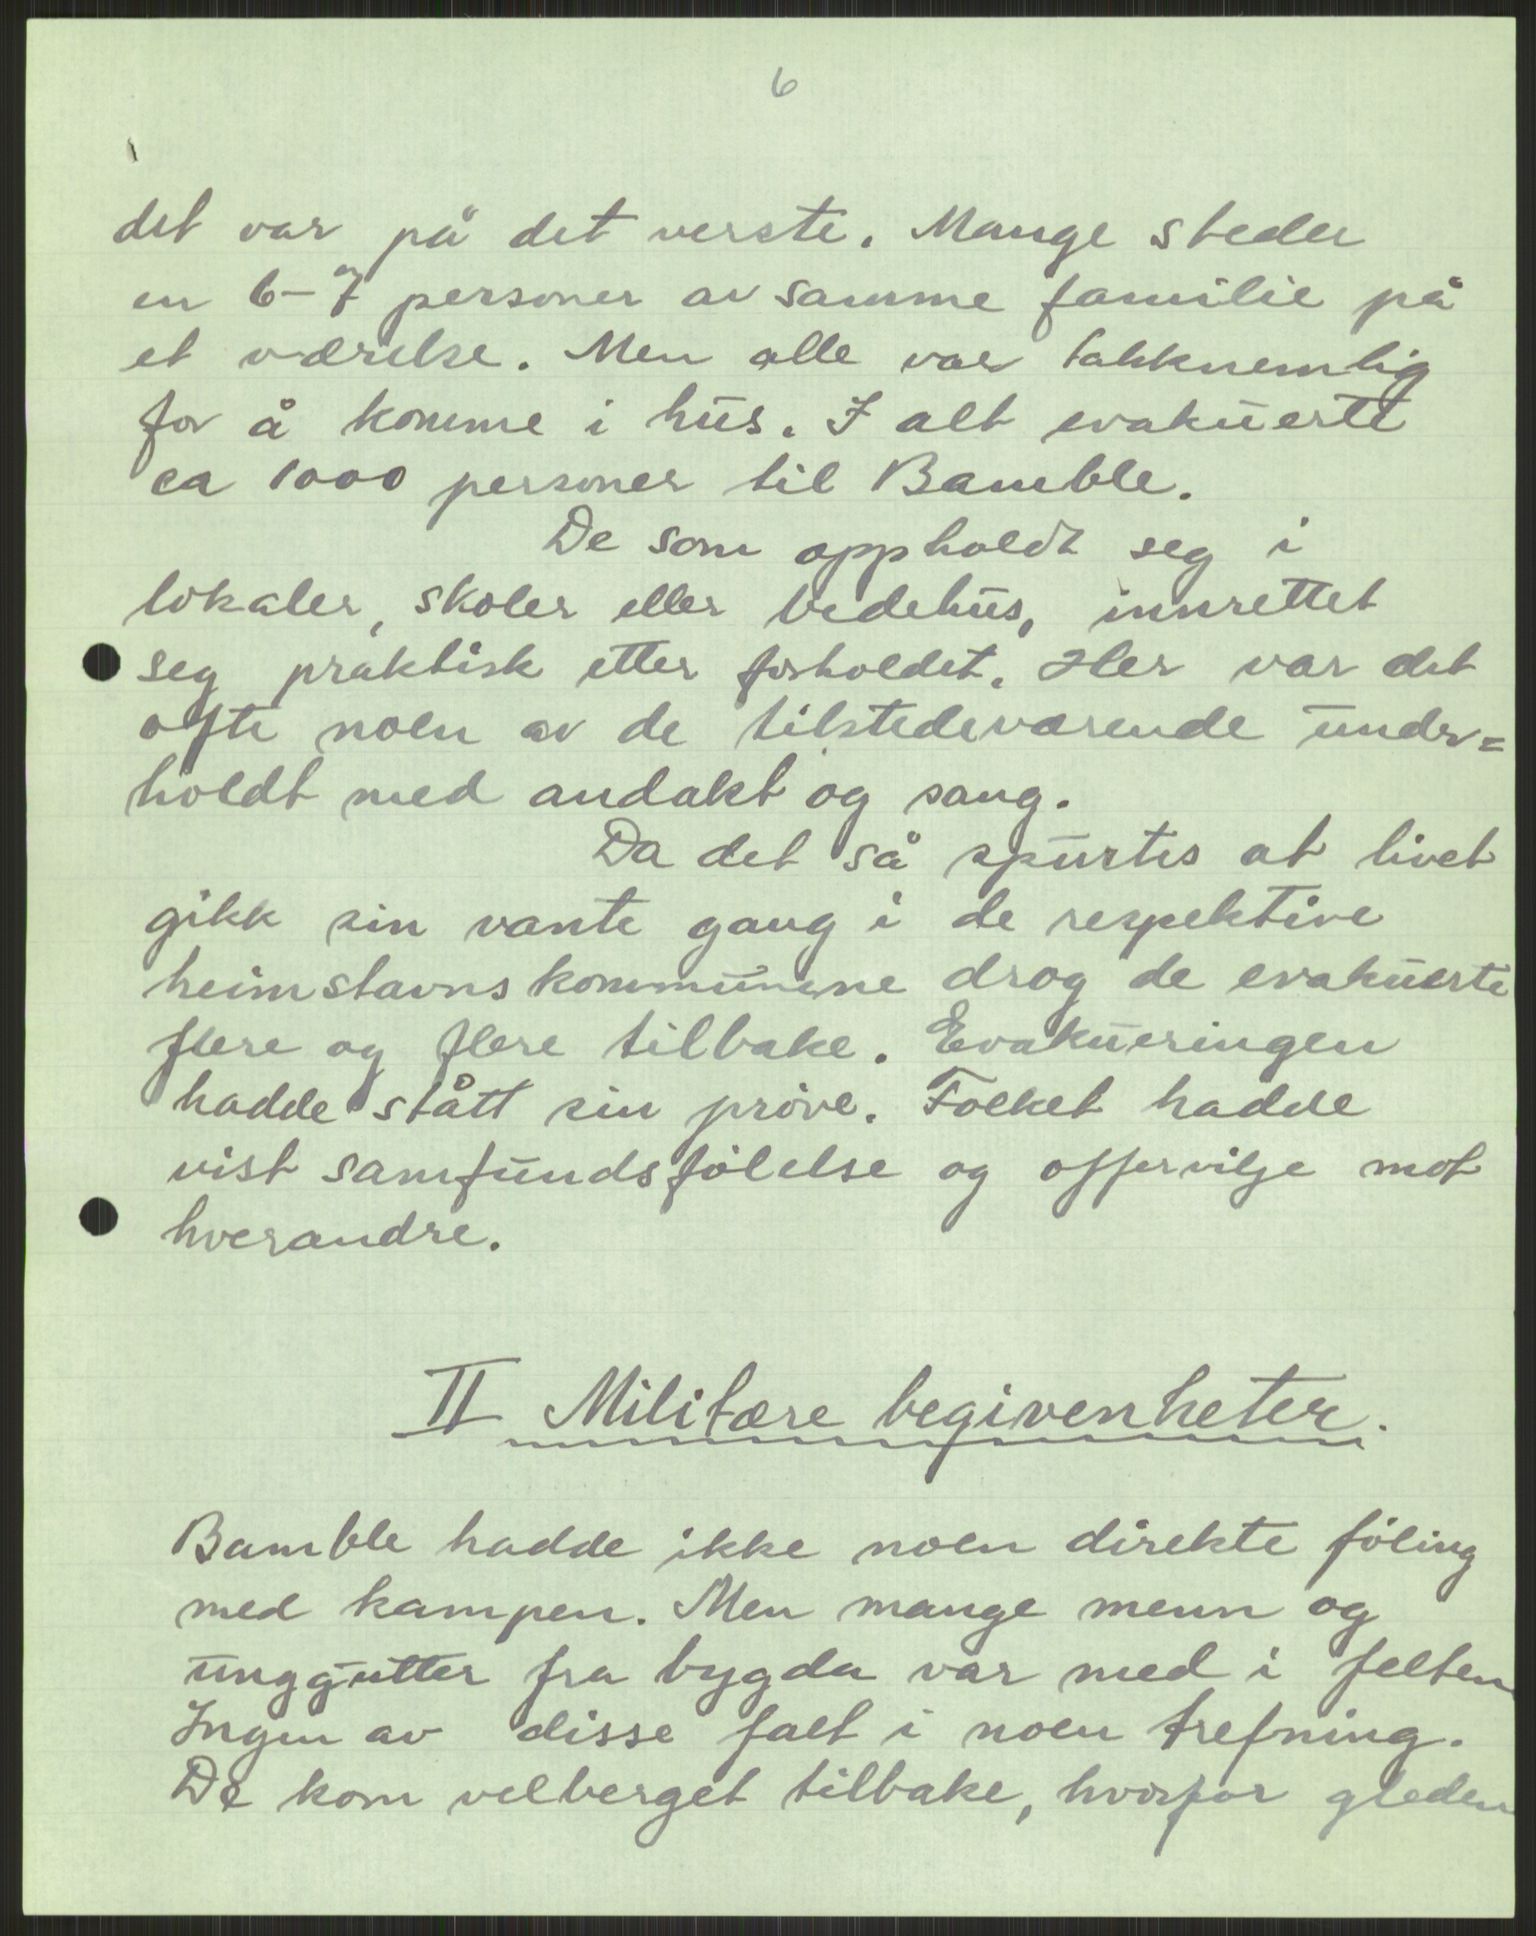 6
det var på det verste. Mange steder
en 6-7 personer av samme familie på
et værelse. Men alle var takknemlig
for å komme i hus. I alt evakuerte
ca 1000 personer til Bamble.
De som oppholdt seg i
lokaler, skoler eller bedehus, innrettet
seg praktisk etter forholdet. Her var det
ofte noen av de tilstedeværende under=
holdt med andakt og sang.
Da det så spurtes at livet
gikk sin vante gang i de respektive
heimstavnskommunene drog de evakuerte
flere og flere tilbake. Evakueringen
hadde stått sin prøve. Folket hadde
vist samfundsfølelse og offervilje mot
hverandre.
II Militære begivenheter.
Bamble hadde ikke noen direkte føling
med kampen. Men mange menn og
unggutter fra bygda var med i felten
Ingen av disse falt i noen trefning.
De kom velberget tilbake, hvorfor gleden